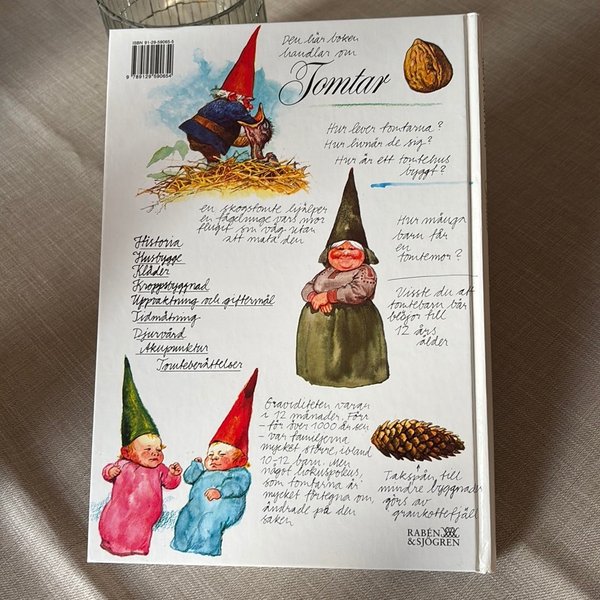 ISBN 91-29-59065-5
9 789129 590654
Den här boken
handlar om
Tomtar
Hur lever tomtarna?
Hur livnär de sig?
Hur är ett tomtehus
byggt?
en skogstomte hjälper
en fågelunge vars mor
flugit sin väg utan
att mata den
Historia
Husbygge
Kläder
Kroppsbyggnad
Uppvaktning och giftermål
Tidmätning
Djurvård
Akupunktur
Tomteberättelser
Hur många
barn får
en
tomtemor?
Visste du att
tomtebarn bär
blöjor till
12 års
ålder
Graviditeten varar
i 12 månader. Förr
- för över 1000 år sen
- var familjerna
mycket större, ibland
10-12 barn. Men
något hokuspokus,
som tomtarna är
mycket förtegna om,
ändrade på den
saken
Takspån till
mindre byggnader
görs av
grankottefjäll
RABÉN
& SJÖGREN